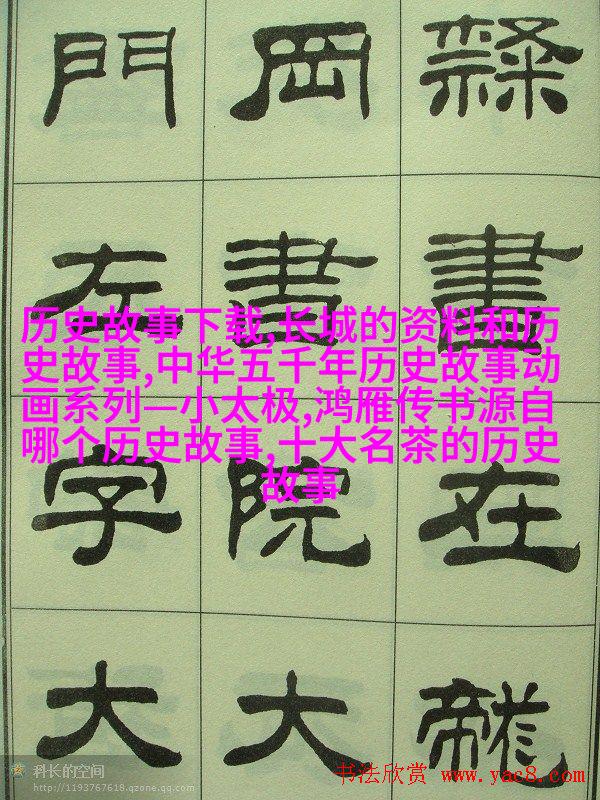 隸書在龍
岡書院大
門左字大
历史故事下载,长城的资料和历
史故事,中华五千年历史故事动
画系列—小太极,鸿雁传书源自
哪个历史故事,十大名茶的历史
故事
科长的空间
http://1193767618.qzone.qq.com
书法欣赏 www.yac8.com